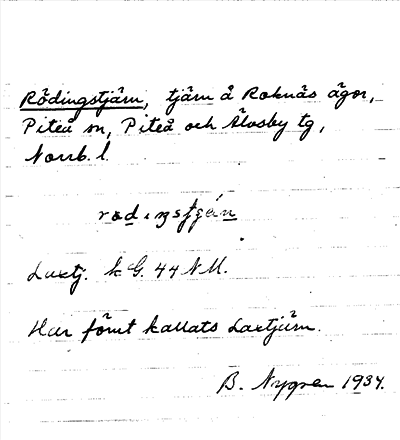 Rödingstjärn, tjärn å Roknäs ägor,
Piteå sn, Piteå och Älvsby tg,
Norrb. l.
Laxtj. k G. 44 N M.
Har förut kallats Laxtjärn.
B. Nygren 1934.